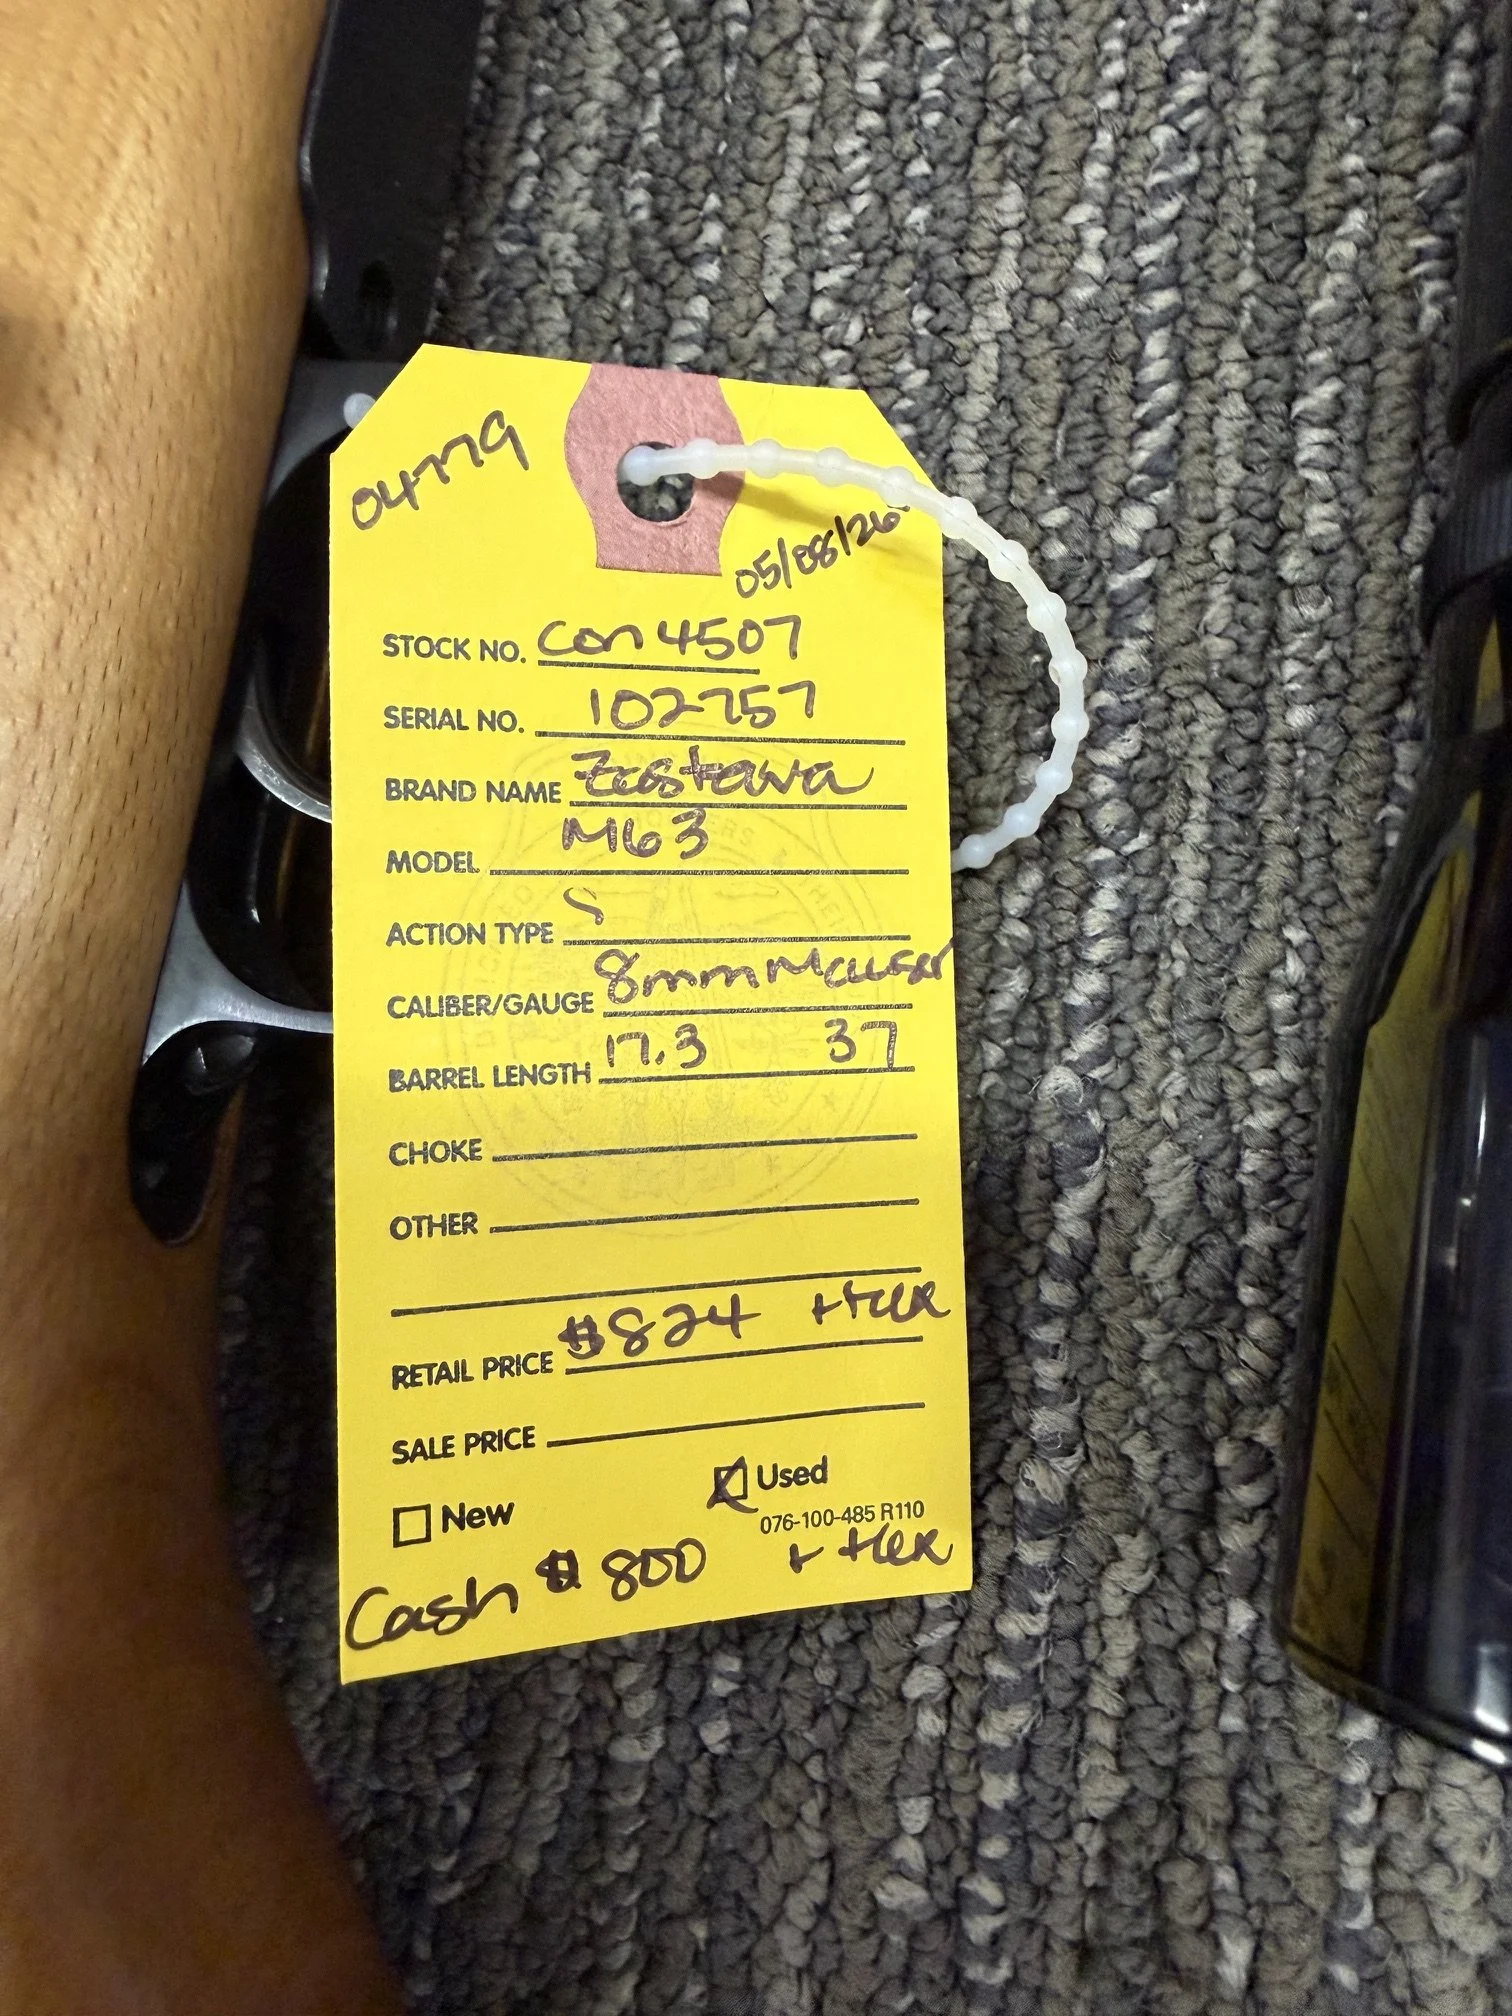 04779
05/08/26
STOCK NO. Con4507
SERIAL NO. 102757
BRAND NAME Zastava
MODEL M63
ACTION TYPE S
CALIBER/GAUGE 8mm Mauser
BARREL LENGTH 17.3 37
CHOKE
OTHER
RETAIL PRICE $824 + tax
SALE PRICE
New Used
076-100-485 R110
Cash $800 + tax